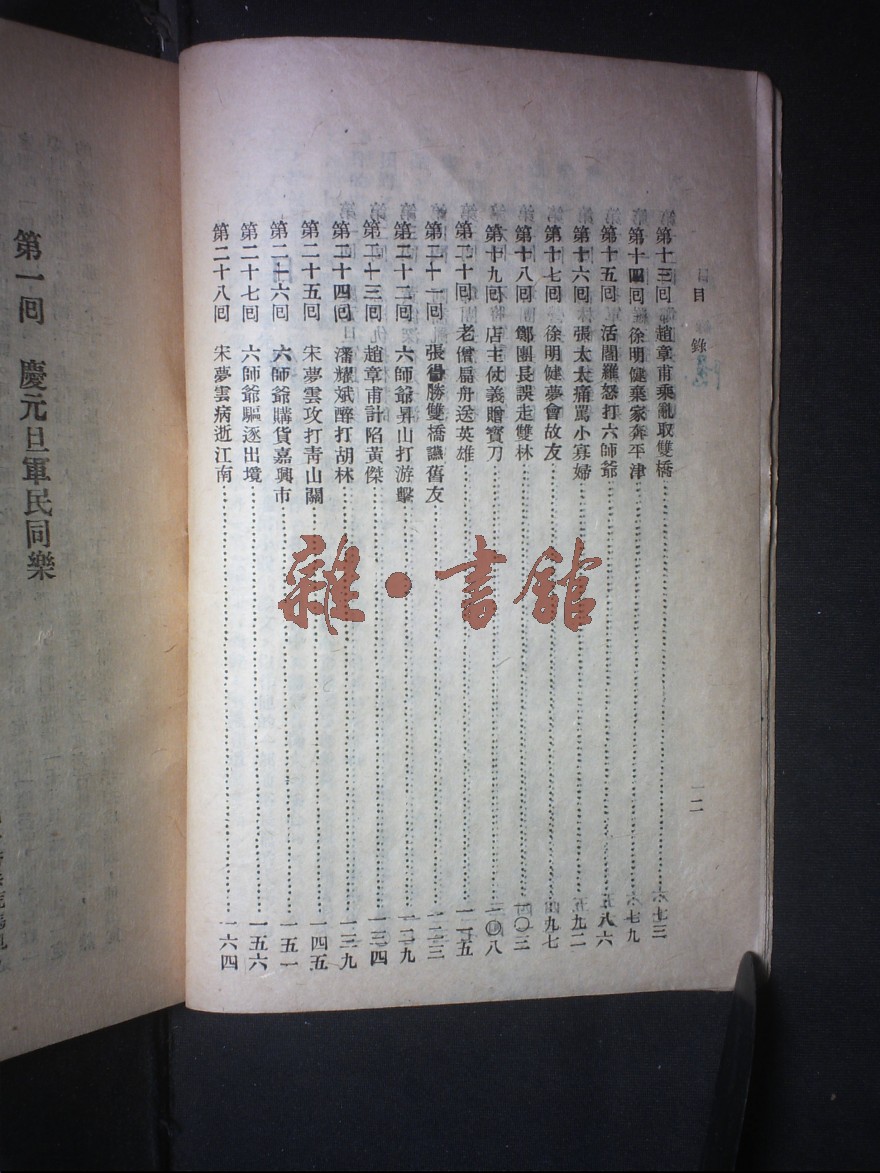 目錄
第十三回 趙章甫乘亂取雙橋 七三
第十四回 徐明健棄家奔平津 七九
第十五回 活閻羅怒打六師爺 八六
第十六回 張太太痛罵小寡婦 九二
第十七回 徐明健夢會故友 九七
第十八回 鄭團長誤走雙林 一〇三
第十九回 店主仗義贈寶刀 一〇八
第二十回 老僧扁舟送英雄 一一五
第二十一回 張得勝雙橋讌舊友 一二三
第二十二回 六師爺昇山打游擊 一二九
第二十三回 趙章甫計陷黃傑 一三四
第二十四回 潘耀斌醉打胡林 一三九
第二十五回 宋夢雲攻打青山關 一四五
第二十六回 六師爺購貨嘉興市 一五一
第二十七回 六師爺驅逐出境 一五六
第二十八回 宋夢雲病逝江南 一六四
二
第一回 慶元旦軍民同樂
雜·書館